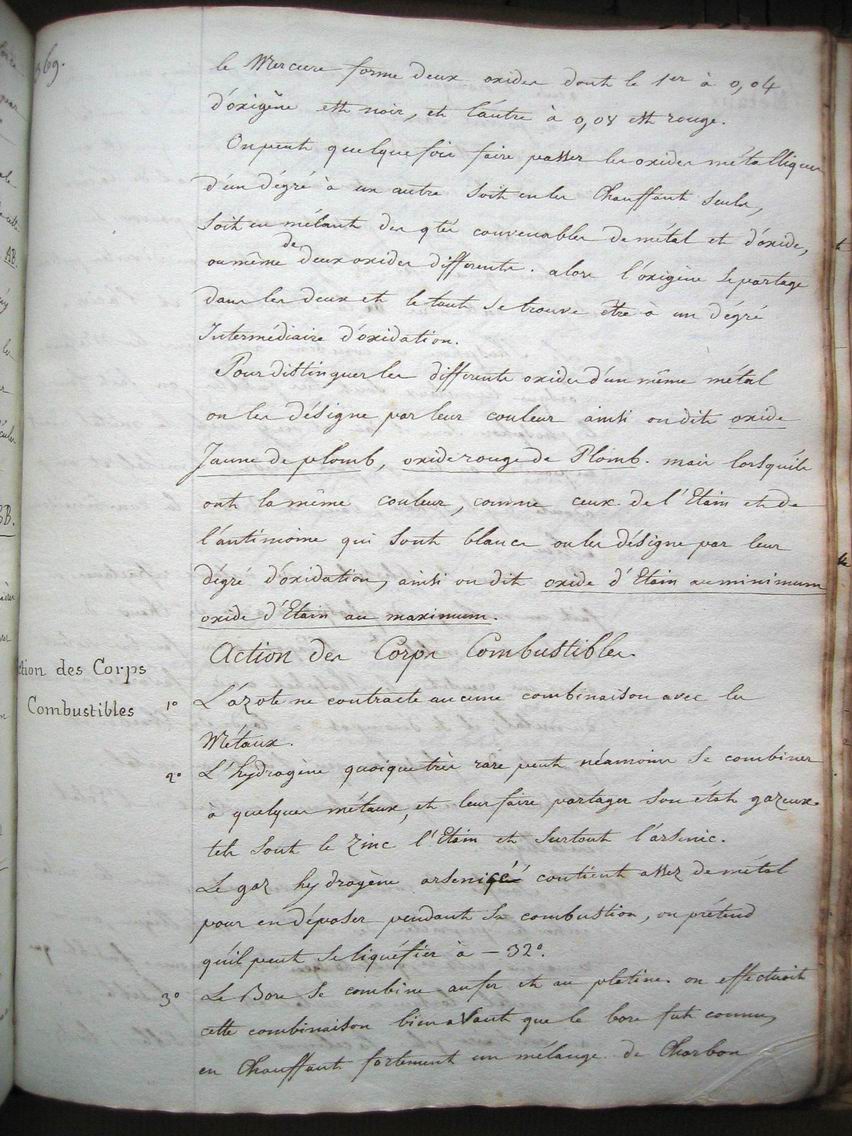 369.
le Mercure forme deux oxides dont le 1er à 0,04
d'oxigène est noir, et l'autre à 0,08 est rouge.
On peut quelquefois faire passer les oxides métalliques
d'un dégré à un autre soit en les Chauffant seuls,
soit en mélant des qtés convenables de métal et d'oxide,
ou même de deux oxides differents. alors l'oxigène se partage
dans les deux et le tout se trouve être à un dégré
Intermédiaire d'oxidation.
Pour distinguer les differents oxides d'un même métal
on les désigne par leur couleur ainsi on dit oxide
Jaune de plomb, oxide rouge de Plomb. mais lorsqu'ils
ont la même couleur, comme ceux de l'Etain et de
l'antimoine qui sont blancs on les désigne par leur
dégré d'oxidation, ainsi on dit oxide d'Etain au minimum
oxide d'Etain au maximum.
Action des Corps Combustibles
ction des Corps
Combustibles
1° L'azote ne contracte aucune combinaison avec les
Métaux.
2° L'hydrogène quoique très rare peut néamoins se combiner
a quelques métaux, et leur faire partager son état gazeux.
tels sont le Zinc l'Etain et surtout l'arsenic.
Le gaz hydrogène arseniqé contient assez de métal
pour en déposer pendant sa combustion, on prétend
qu'il peut se liquéfier à - 32°.
3° Le Bore se combine au fer et au platine. on effectuoit
cette combinaison bien avant que le bore fut connu,
en Chauffant fortement un mélange de Charbon